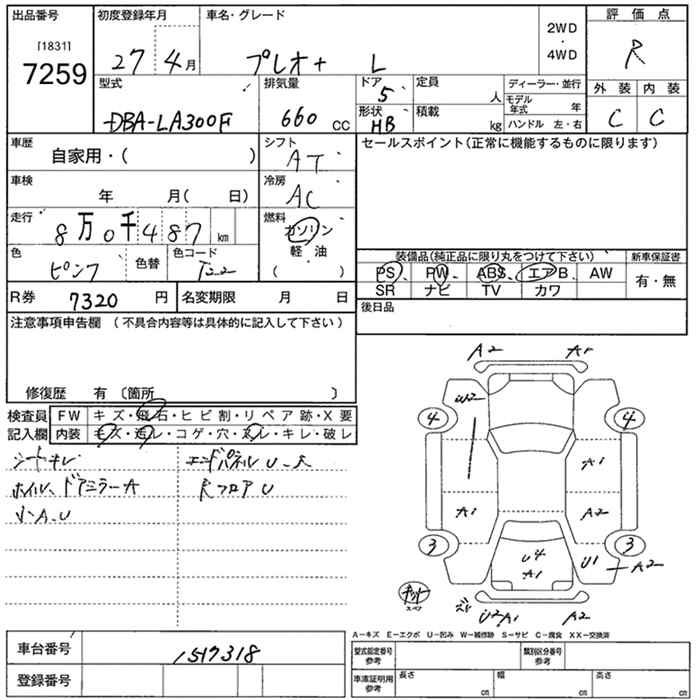 出品番号 初度登録年月 車名・グレード 評価点
[1831]
7259
27年4月 プレオ+ L
2WD
・
4WD
R
型式 排気量 ドア 定員 ディーラー・並行 外装 内装
5 人 モデル年式 年
DBA-LA300F 660 CC 形状 HB 積載 kg ハンドル 左・右 C C
車歴 自家用・( ) シフト AT セールスポイント(正常に機能するものに限ります)
車検 年 月( 日) 冷房 AC
走行 8万0千487km 燃料 ガソリン
軽・油
( )
色 ピンク 色替 色コード T22
装備品(純正品に限り丸をつけて下さい) 新車保証書
PS PW ABS エアB AW 有・無
SR ナビ TV カワ
R券 7320円 名変期限 月 日 後日品
注意事項申告欄(不具合内容等は具体的に記入して下さい)
修復歴 有〔箇所 〕
検査員 FW キズ・飛石・ヒビ割・リペア跡・X要
記入欄 内装 キズ・汚レ・コゲ・穴・スレ・キレ・破レ
シートキレ エンドパネルU
ホイル、ドアミラーA フロアU
小A.U
A2
W2
4 4
A1
A1 A2
3 3
U4
A1
U1 A2
U2A1 A2
スペア
A−キズ E−エクボ U−凹み W−補修跡 S−サビ C−腐食 XX−交換済
車台番号 1517318 型式指定番号 参考 類別区分番号 参考
登録番号 車庫証明用 参考 長さ cm 幅 cm 高さ cm